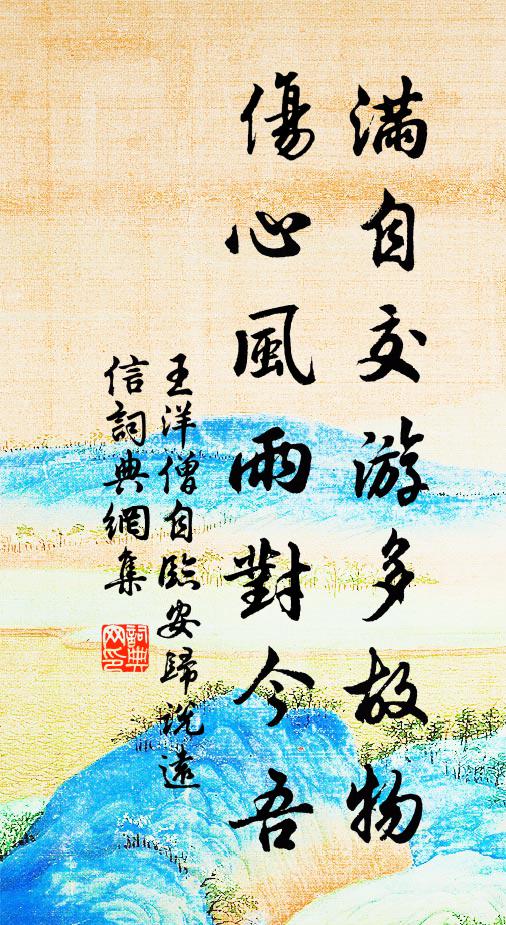 滿自交游多故物
傷心風雨對今吾
王洋僧自臨安歸説遠
信詞典網集
詞典
网印